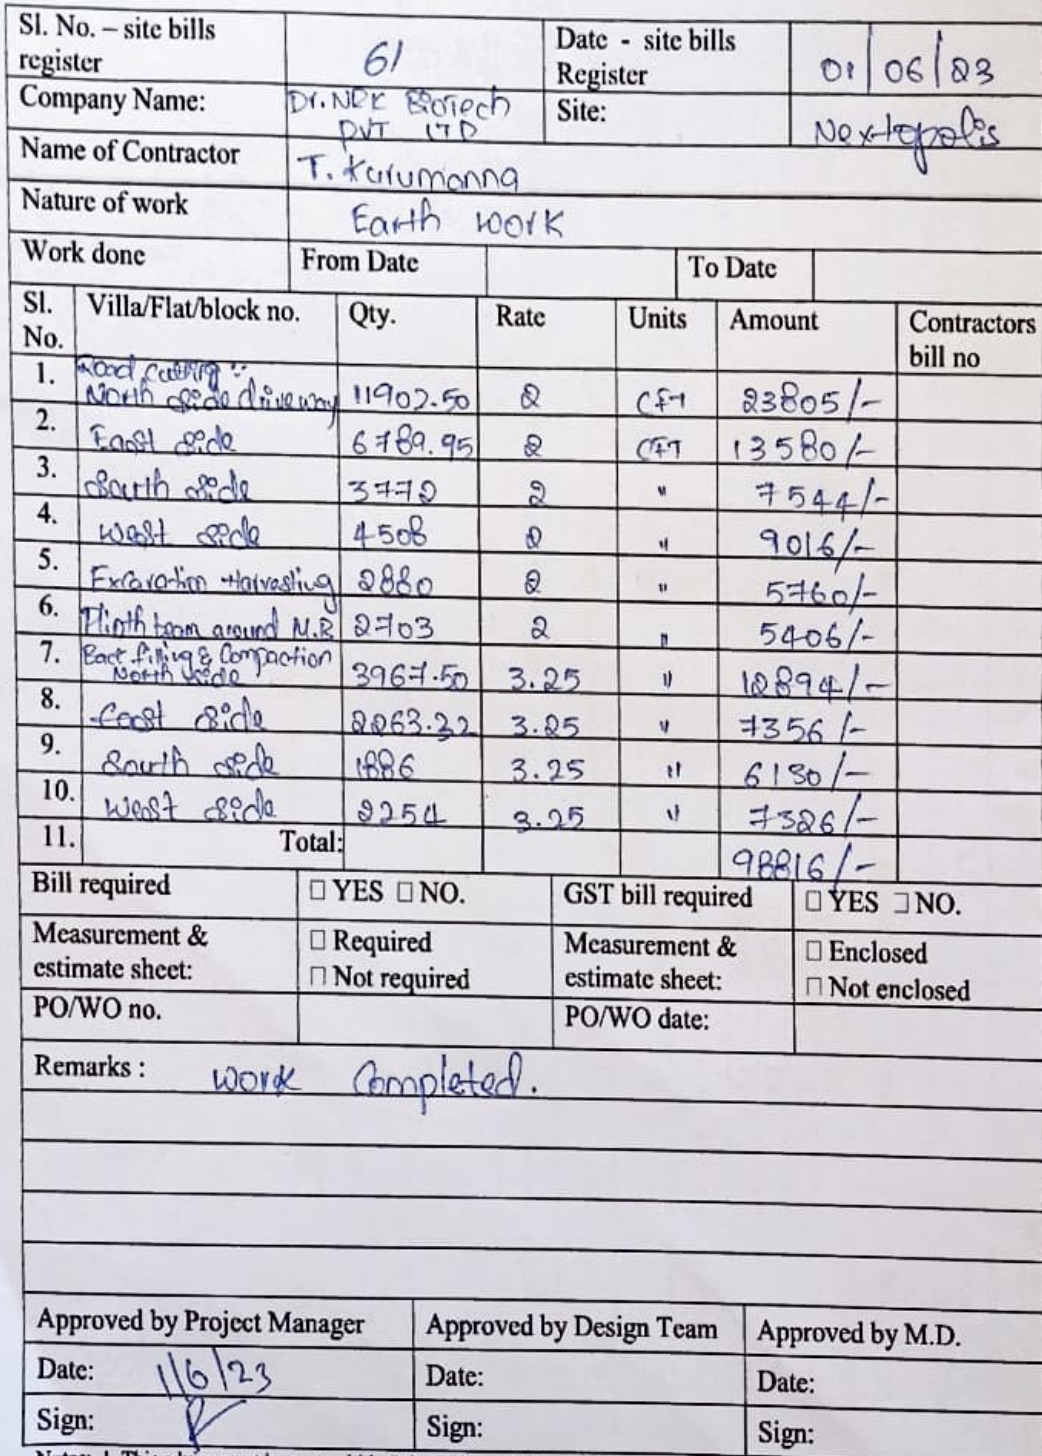 Sl. No. – site bills register 61 Date - site bills Register 01/06/23
Company Name: Dr. NRK Biotech PVT LTD Site: Nextopolis
Name of Contractor T. Kurumanna
Nature of work Earth work
Work done From Date To Date
Sl. No. Villa/Flat/block no. Qty. Rate Units Amount Contractors bill no
1. Road cutting :- North side driveway 11902.50 2 CFT 23805/-
2. East side 6789.95 2 CFT 13580/-
3. South side 3772 2 " 7544/-
4. West side 4508 2 " 9016/-
5. Excavation Harvesting 2880 2 " 5760/-
6. Plinth beam around M.R 2703 2 " 5406/-
7. Back filling & Compaction North side 3967.50 3.25 " 12894/-
8. East side 2263.32 3.25 " 7356/-
9. South side 1886 3.25 " 6130/-
10. West side 2254 3.25 " 7326/-
11. Total: 98816/-
Bill required □ YES □ NO. GST bill required □ YES □ NO.
Measurement & estimate sheet: □ Required □ Not required Measurement & estimate sheet: □ Enclosed □ Not enclosed
PO/WO no. PO/WO date:
Remarks : work Completed.
Approved by Project Manager Approved by Design Team Approved by M.D.
Date: 1/6/23 Date: Date:
Sign: Sign: Sign: